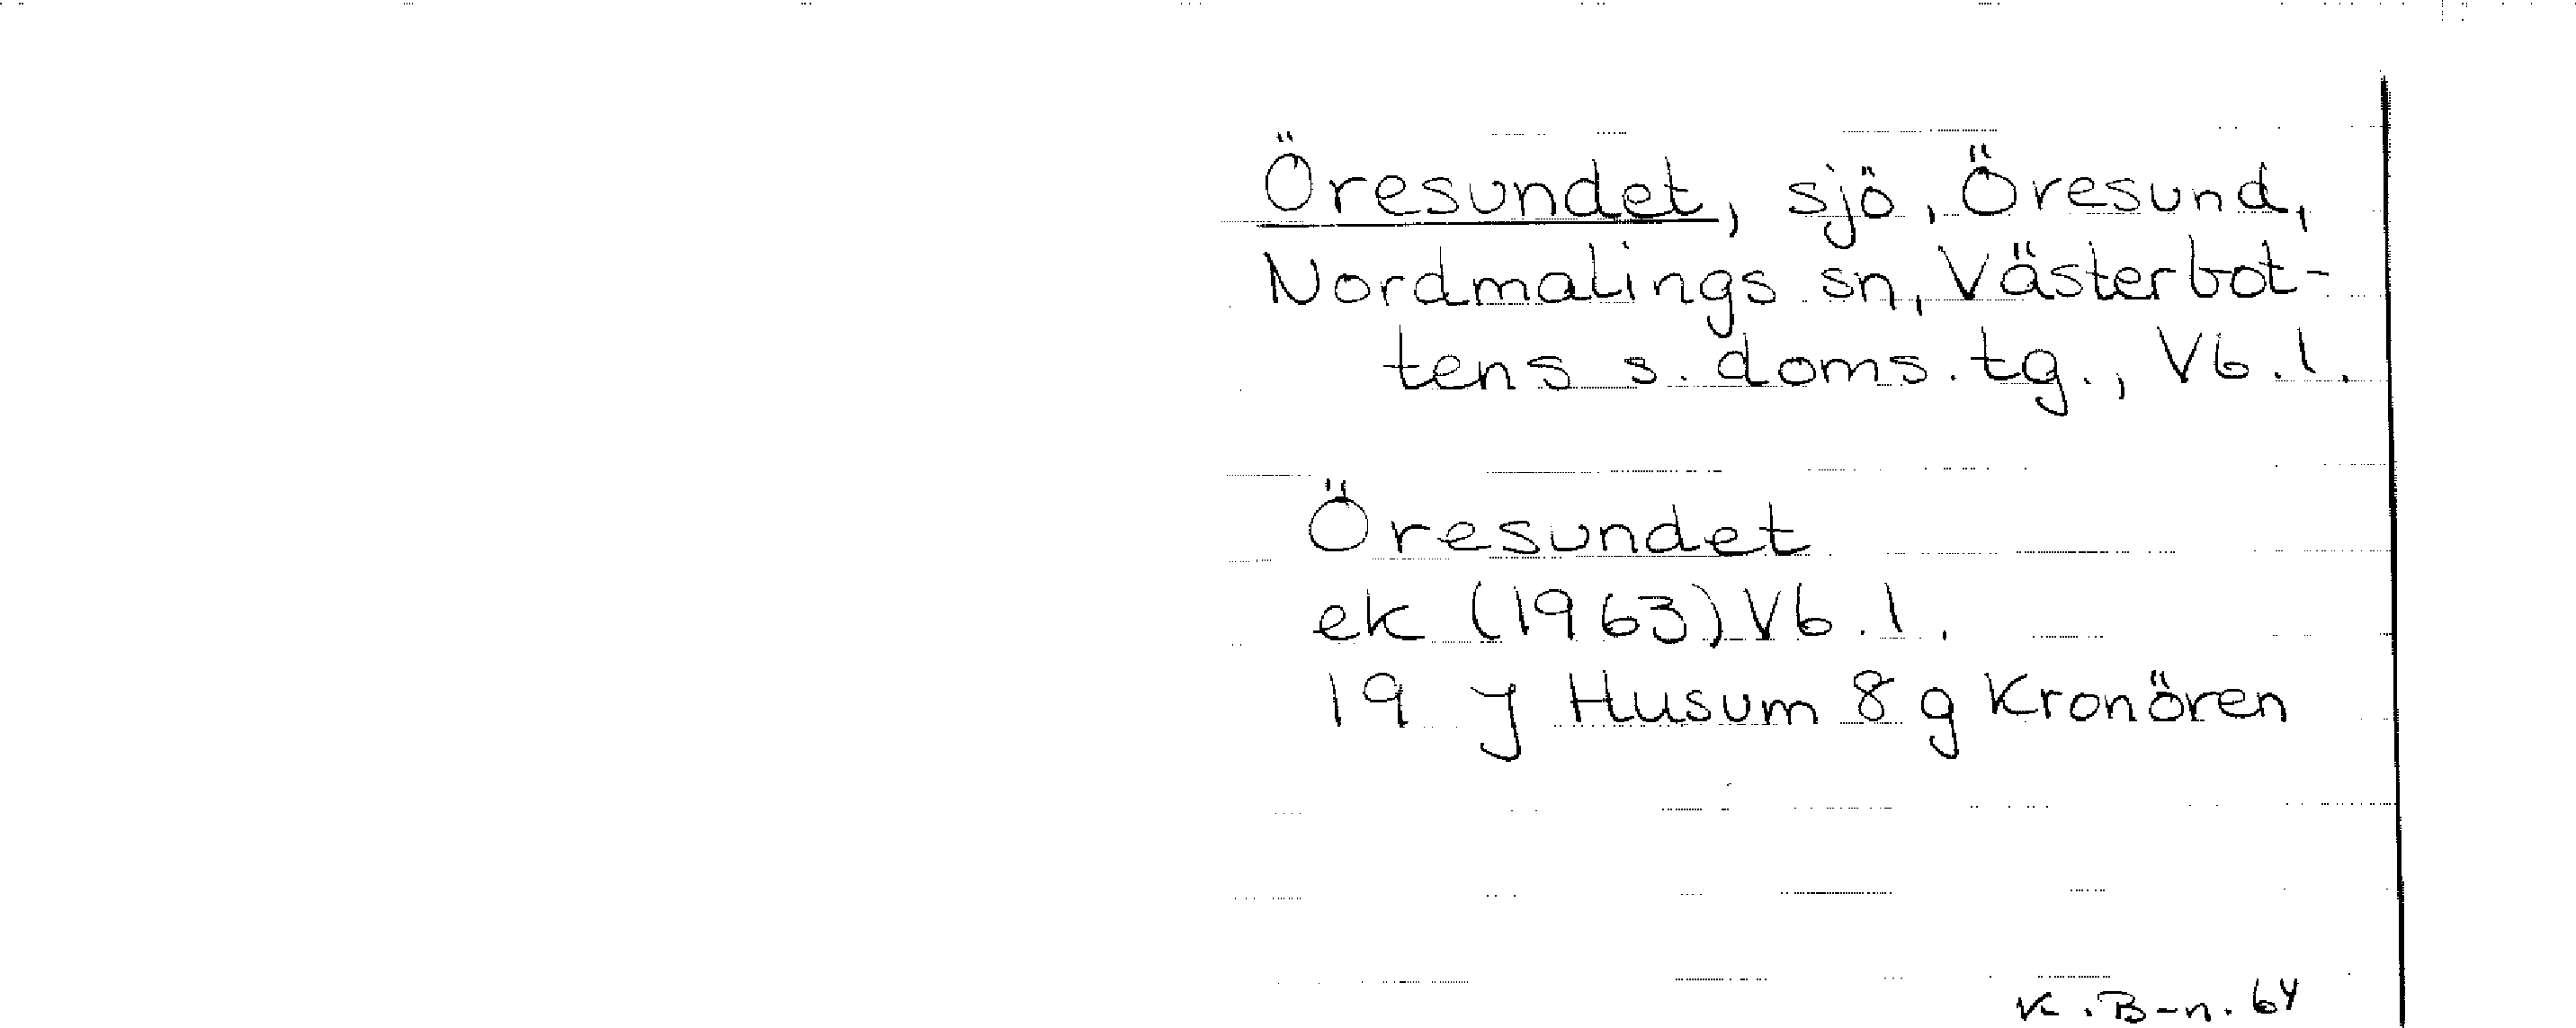 Öresundet, sjö, Öresund,
Nordmalings sn, Västerbot-
tens s. doms. tg., Vb. l.
Öresundet
ek (1963) Vb. l.
19 J Husum 8 g Kronören
K. B-n. 64